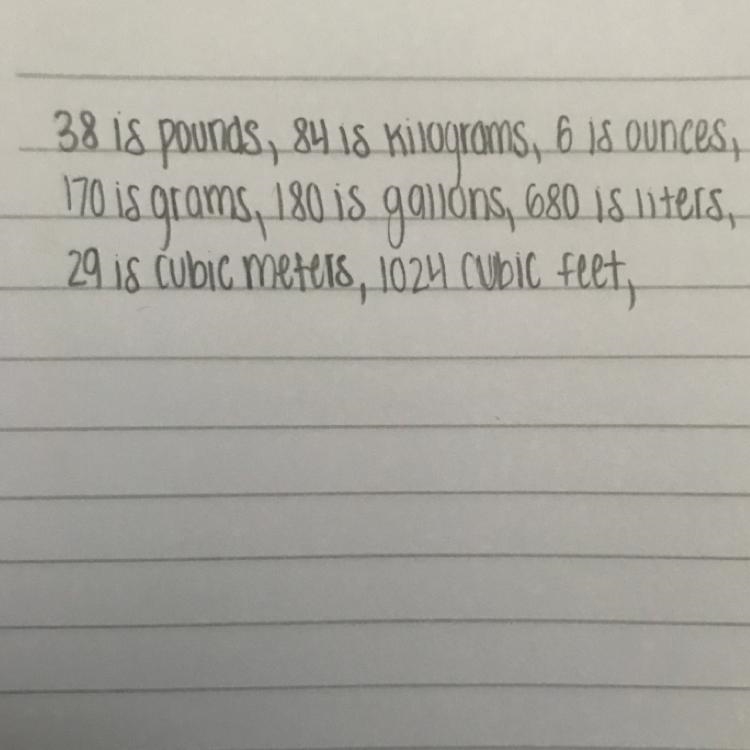 38 is pounds, 84 is kilograms, 6 is ounces,
170 is grams, 180 is gallons, 680 is liters,
29 is cubic meters, 1024 cubic feet,